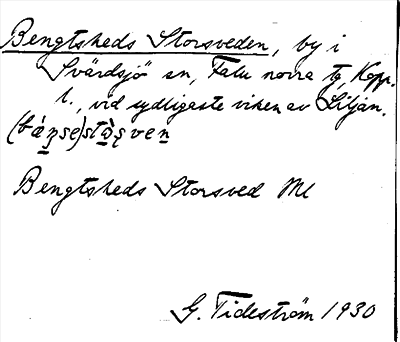 Bengtsheds Storsveden, by i
Svärdsjö sn, Falu norra tg, Kopp.
l., vid sydligaste viken av Liljan.
Bengtsheds Storsved Ml
G. Tideström 1930